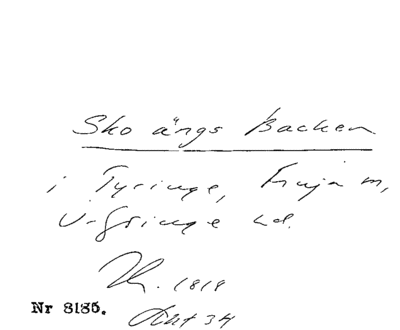 Sko ängs Backen
i Tyringe, Finja m,
V-Göinge Hd.
Th. 1818
Nr 8185.
Akt 34